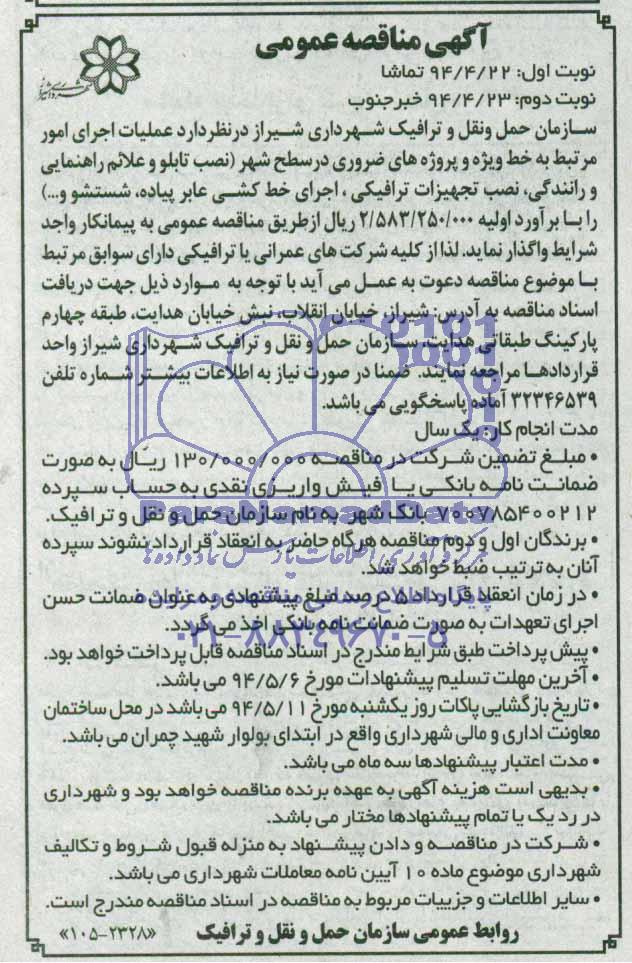 آگهی مناقصه عمومی
نوبت اول: ۹۴/۴/۲۲ تماشا
نوبت دوم: ۹۴/۴/۲۳ خبرجنوب
سازمان حمل ونقل و ترافیک شهرداری شیراز درنظردارد عملیات اجرای امور
مرتبط به خط ویژه و پروژه های ضروری درسطح شهر (نصب تابلو و علائم راهنمایی
و رانندگی، نصب تجهیزات ترافیکی ، اجرای خط کشی عابر پیاده، شستشو و...)
را با برآورد اولیه ۲/۵۸۳/۲۵۰/۰۰۰ ریال ازطریق مناقصه عمومی به پیمانکار واجد
شرایط واگذار نماید. لذا از کلیه شرکت های عمرانی یا ترافیکی دارای سوابق مرتبط
با موضوع مناقصه دعوت به عمل می آید با توجه به موارد ذیل جهت دریافت
اسناد مناقصه به آدرس: شیراز، خیابان انقلاب، نبش خیابان هدایت، طبقه چهارم
پارکینگ طبقاتی هدایت، سازمان حمل و نقل و ترافیک شهرداری شیراز واحد
قراردادها مراجعه نمایند. ضمنا در صورت نیاز به اطلاعات بیشتر شماره تلفن
۳۲۳۴۶۵۳۹ آماده پاسخگویی می باشد.
مدت انجام کار: یک سال
• مبلغ تضمین شرکت در مناقصه ۱۳۰/۰۰۰/۰۰۰ ریال به صورت
ضمانت نامه بانکی یا فیش واریزی نقدی به حساب سپرده
۷۰۰۷۸۵۴۰۰۲۱۲ بانک شهر به نام سازمان حمل و نقل و ترافیک.
ParsNamadData
• برندگان اول و دوم مناقصه هرگاه حاضر به انعقاد قرارداد نشوند سپرده
آنان به ترتیب ضبط خواهد شد.
• در زمان انعقاد قرارداد ۵ درصد مبلغ پیشنهادی به عنوان ضمانت حسن
اجرای تعهدات به صورت ضمانت نامه بانکی اخذ می گردد.
۰۲۱-۸۸۳۴۹۶۷۰-۵
• پیش پرداخت طبق شرایط مندرج در اسناد مناقصه قابل پرداخت خواهد بود.
• آخرین مهلت تسلیم پیشنهادات مورخ ۹۴/۵/۶ می باشد.
• تاریخ بازگشایی پاکات روز یکشنبه مورخ ۹۴/۵/۱۱ می باشد در محل ساختمان
معاونت اداری و مالی شهرداری واقع در ابتدای بولوار شهید چمران می باشد.
• مدت اعتبار پیشنهادها سه ماه می باشد.
• بدیهی است هزینه آگهی به عهده برنده مناقصه خواهد بود و شهرداری
در رد یک یا تمام پیشنهادها مختار می باشد.
• شرکت در مناقصه و دادن پیشنهاد به منزله قبول شروط و تکالیف
شهرداری موضوع ماده ۱۰ آیین نامه معاملات شهرداری می باشد.
• سایر اطلاعات و جزییات مربوط به مناقصه در اسناد مناقصه مندرج است.
روابط عمومی سازمان حمل و نقل و ترافیک
«۱۰۵-۲۳۲۸»